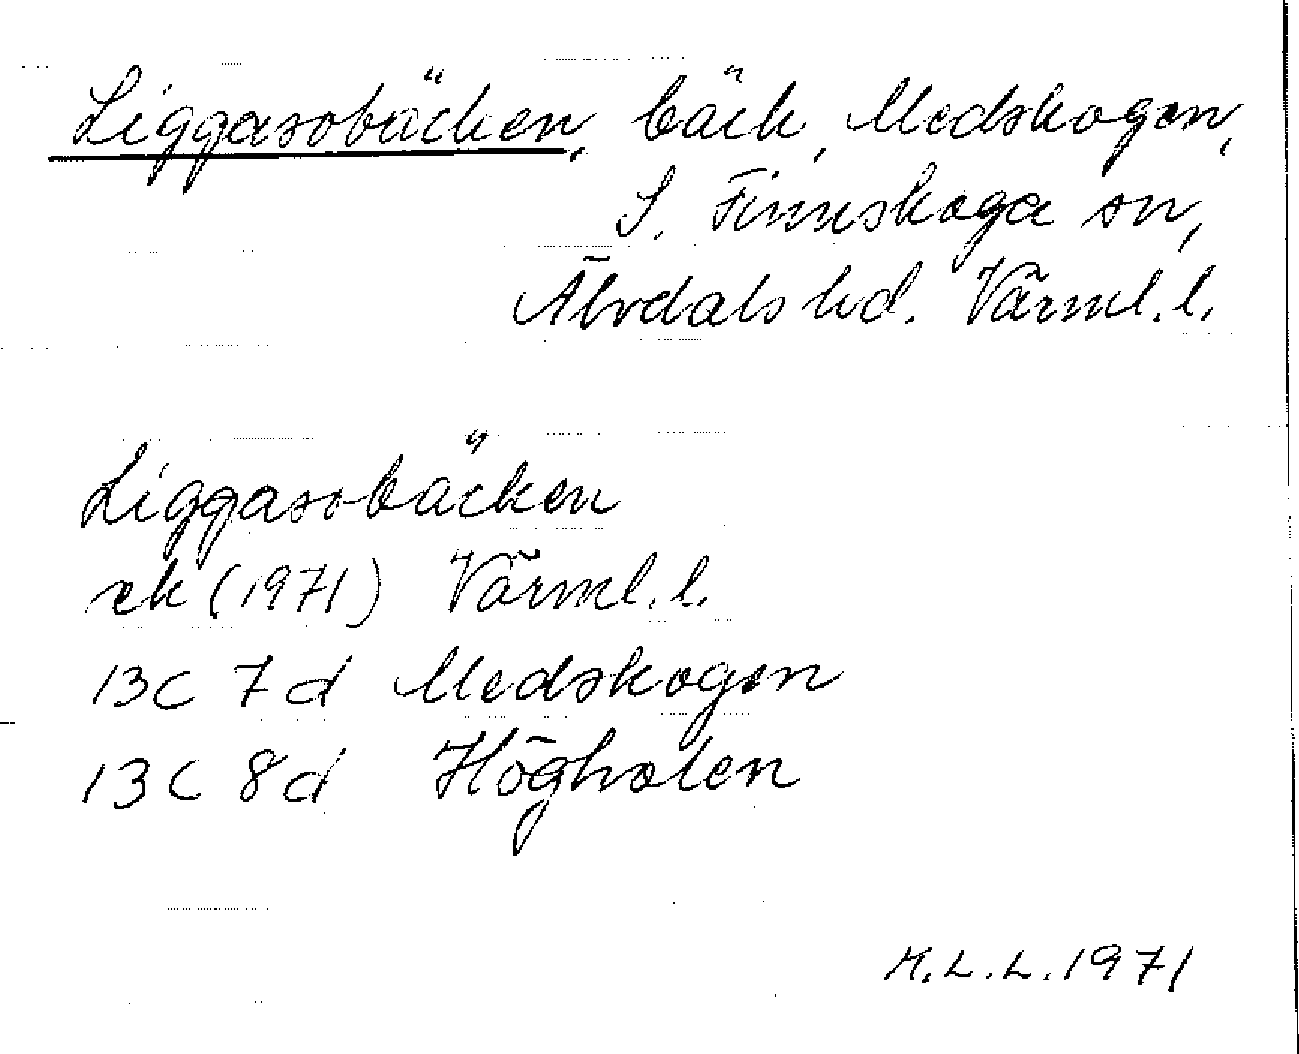 Liggasobäcken, bäck, Medskogen,
S. Finnskoga sn,
Älvdals hd. Värml. l.
Liggasobäcken
ek (1971) Värml. l.
13C 7d Medskogen
13C 8d Högholen
M.L.L. 1971